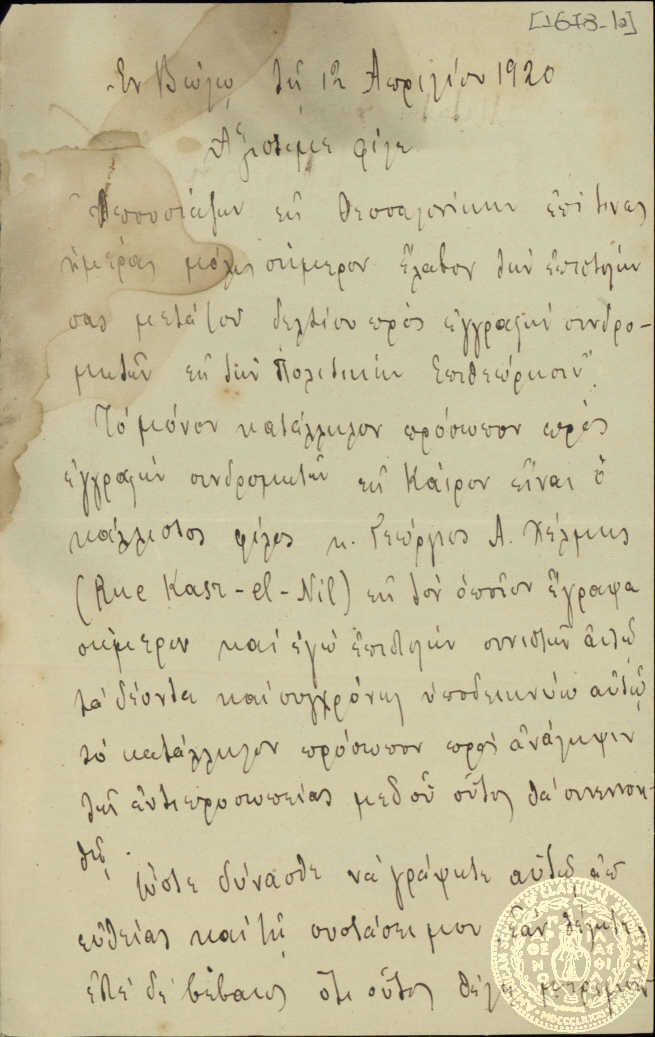 [1678-1a]
Ἐν Βώλῳ τῇ 12 Ἀπριλίου 1920
Ἀξιότιμε φίλε
Ἀπουσιάζων εἰς Θεσσαλονίκην ἐπί τινας
ἡμέρας μόλις σήμερον ἔλαβον τὴν ἐπιστολήν
σας μετὰ τοῦ δελτίου πρὸς ἐγγραφὴν συνδρο-
μητῶν εἰς τὴν Πολιτικὴν Ἐπιθεώρησιν".
Τὸ μόνον κατάλληλον πρόσωπον πρὸς
ἐγγραφὴν συνδρομητῶν εἰς Κάιρον εἶναι ὁ
κάλλιστος φίλος κ. Γεώργιος Α.
(Rue Kasr-el-Nil) εἰς τὸν ὁποῖον ἔγραψα
σήμερον καὶ ἐγὼ ἐπιστολὴν συνιστῶν αὐτῷ
τὰ δέοντα καὶ συγχρόνως ὑποδεικνύω αὐτῷ
τὸ κατάλληλον πρόσωπον πρὸς ἀνάληψιν
τῆς ἀντιπροσωπείας μεθ' οὗ οὗτος θὰ συνεννοη-
θῇ.
Ὥστε δύνασθε νὰ γράψητε αὐτῷ ἀπ'
εὐθείας καὶ τῇ συστάσει μου ἐὰν θέλητε,
δὲ βέβαιος ὅτι οὗτος θέλει